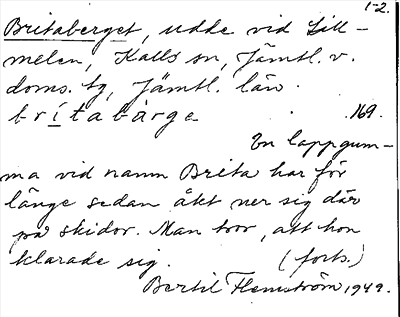 1-2.
Britaberget, udde vid Lill-
melen, Kalls sn, Jämtl. v.
doms. tg, Jämtl. län.
brítabàrge 169.
En lappgum-
ma vid namn Brita har för
länge sedan åkt ner sig där
på skidor. Man tror, att hon
klarade sig. (forts.)
Bertil Flemström 1949.